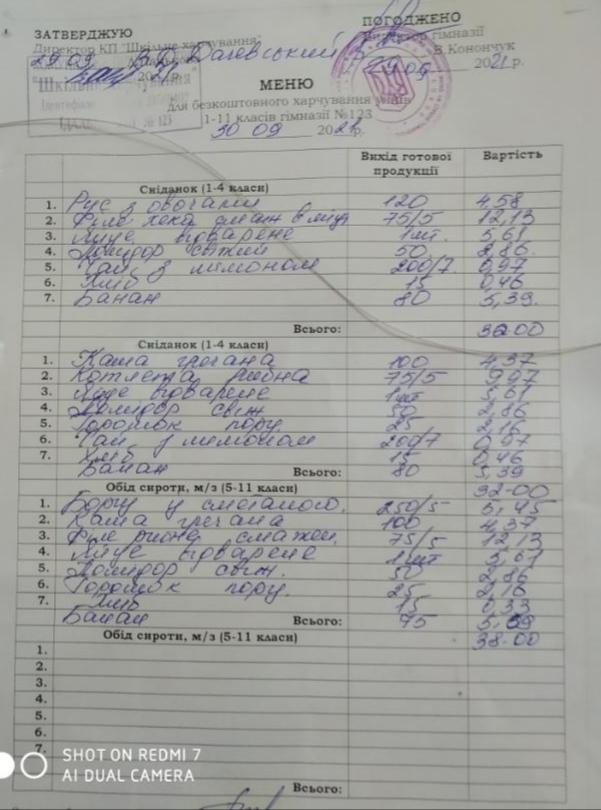 ЗАТВЕРДЖУЮ
ПОГОДЖЕНО
Директор КП "Шкільне харчування"
Директор гімназії
В.Конончук
29.09
29.09 2021р.
Шкільне харчування
№ 123
МЕНЮ
для безкоштовного харчування учнів
1-11 класів гімназії №123
30 09 2021р.
Вихід готової продукції Вартість
Сніданок (1-4 класи)
1. Рис з овочами 120 4,58
2. Філе хека смаж в яйці 75/5 12,13
3. Яйце відварене 1шт. 5,61
4. Помідор свіжий 50 2,86
5. Чай з лимоном 200/7 0,97
6. Хліб 15 0,46
7. Банан 80 5,39
Всього: 32-00
Сніданок (1-4 класи)
1. Каша гречана 100 4,37
2. Котлета рибна 75/5 9,97
3. Яйце відварене 1шт 5,61
4. Помідор свіж 50 2,86
5. Горошок пору. 25 2,16
6. Чай з лимоном 200/7 0,97
7. Хліб 15 0,46
Банан 80 5,39
Всього: 32-00
Обід сироти, м/з (5-11 класи)
1. Борщ у сметаною. 250/5 5,45
2. Каша гречана 100 4,37
3. Філе рибне смажен. 75/5 12,13
4. Яйце відварене 1шт 5,61
5. Помідор свіж. 50 2,86
6. Горошок пору. 25 2,16
7. Хліб 15 0,33
Банан 75 5,09
Всього: 38-00
Обід сироти, м/з (5-11 класи)
1.
2.
3.
4.
5.
6.
7.
Всього:
SHOT ON REDMI 7
AI DUAL CAMERA